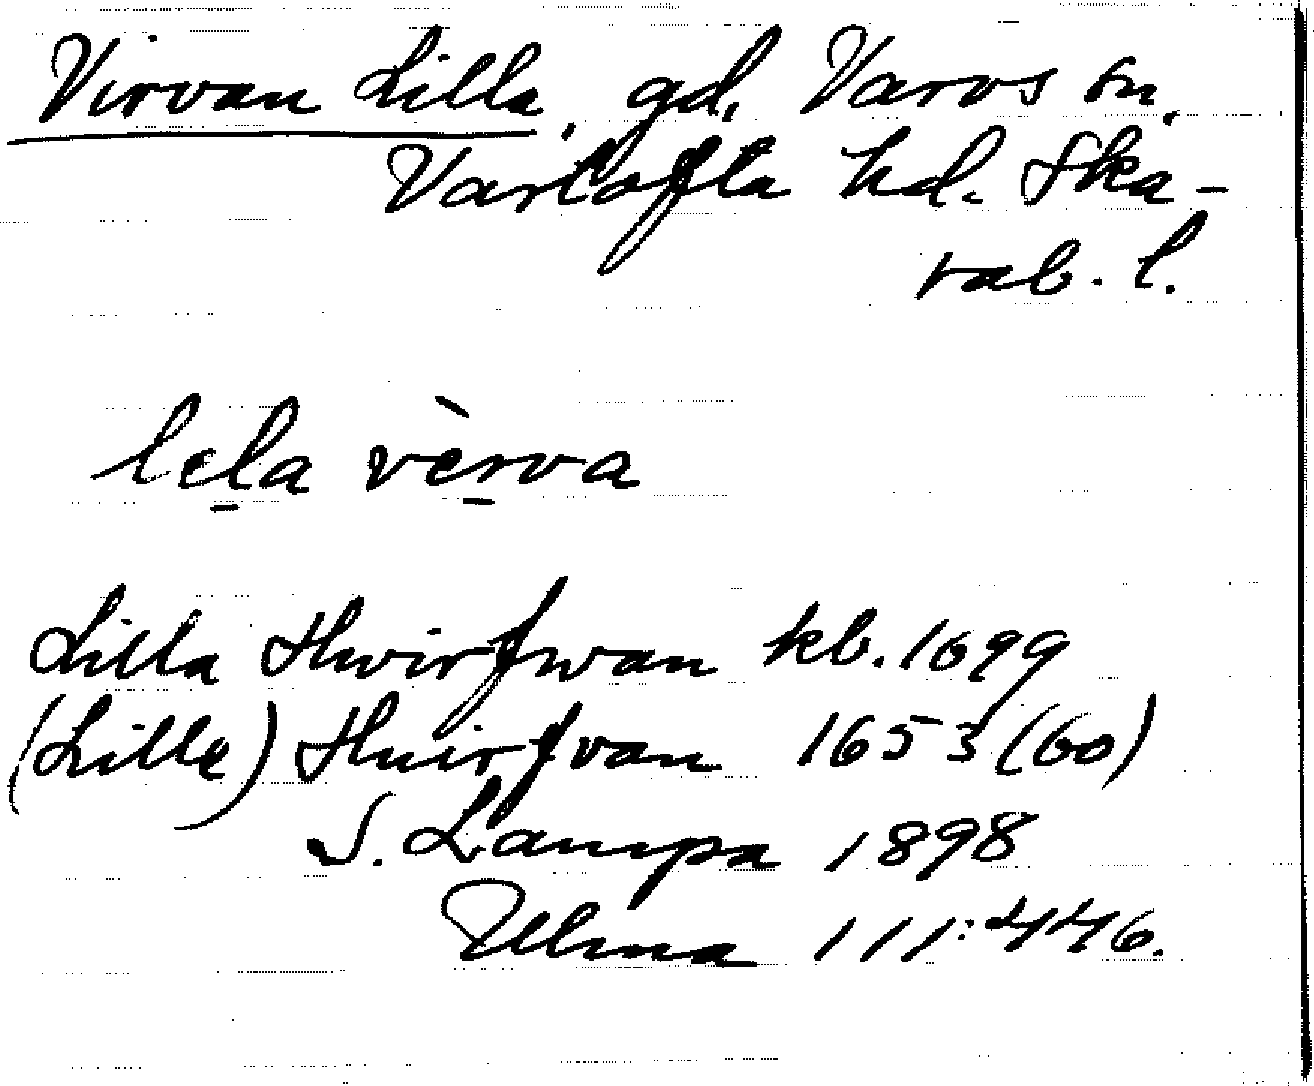 Virvan Lilla, gd, Varvs sn,
Vartofta hd. Ska-
rab. l.
lela vèrva
Lilla Hwirfwan kb. 1699
(Lille) Huirfvan 1653 (60)
S. Lampa 1898
Ulma 111:446.